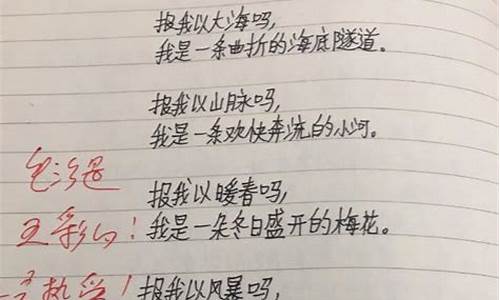 报我以大海吗，
我是一条曲折的海底隧道。
报我以山脉吗，
我是一条欢快奔流的小河。
报我以暖春吗，
五彩的！我是一朵冬日盛开的梅花。
热爱！报我以风暴吗，